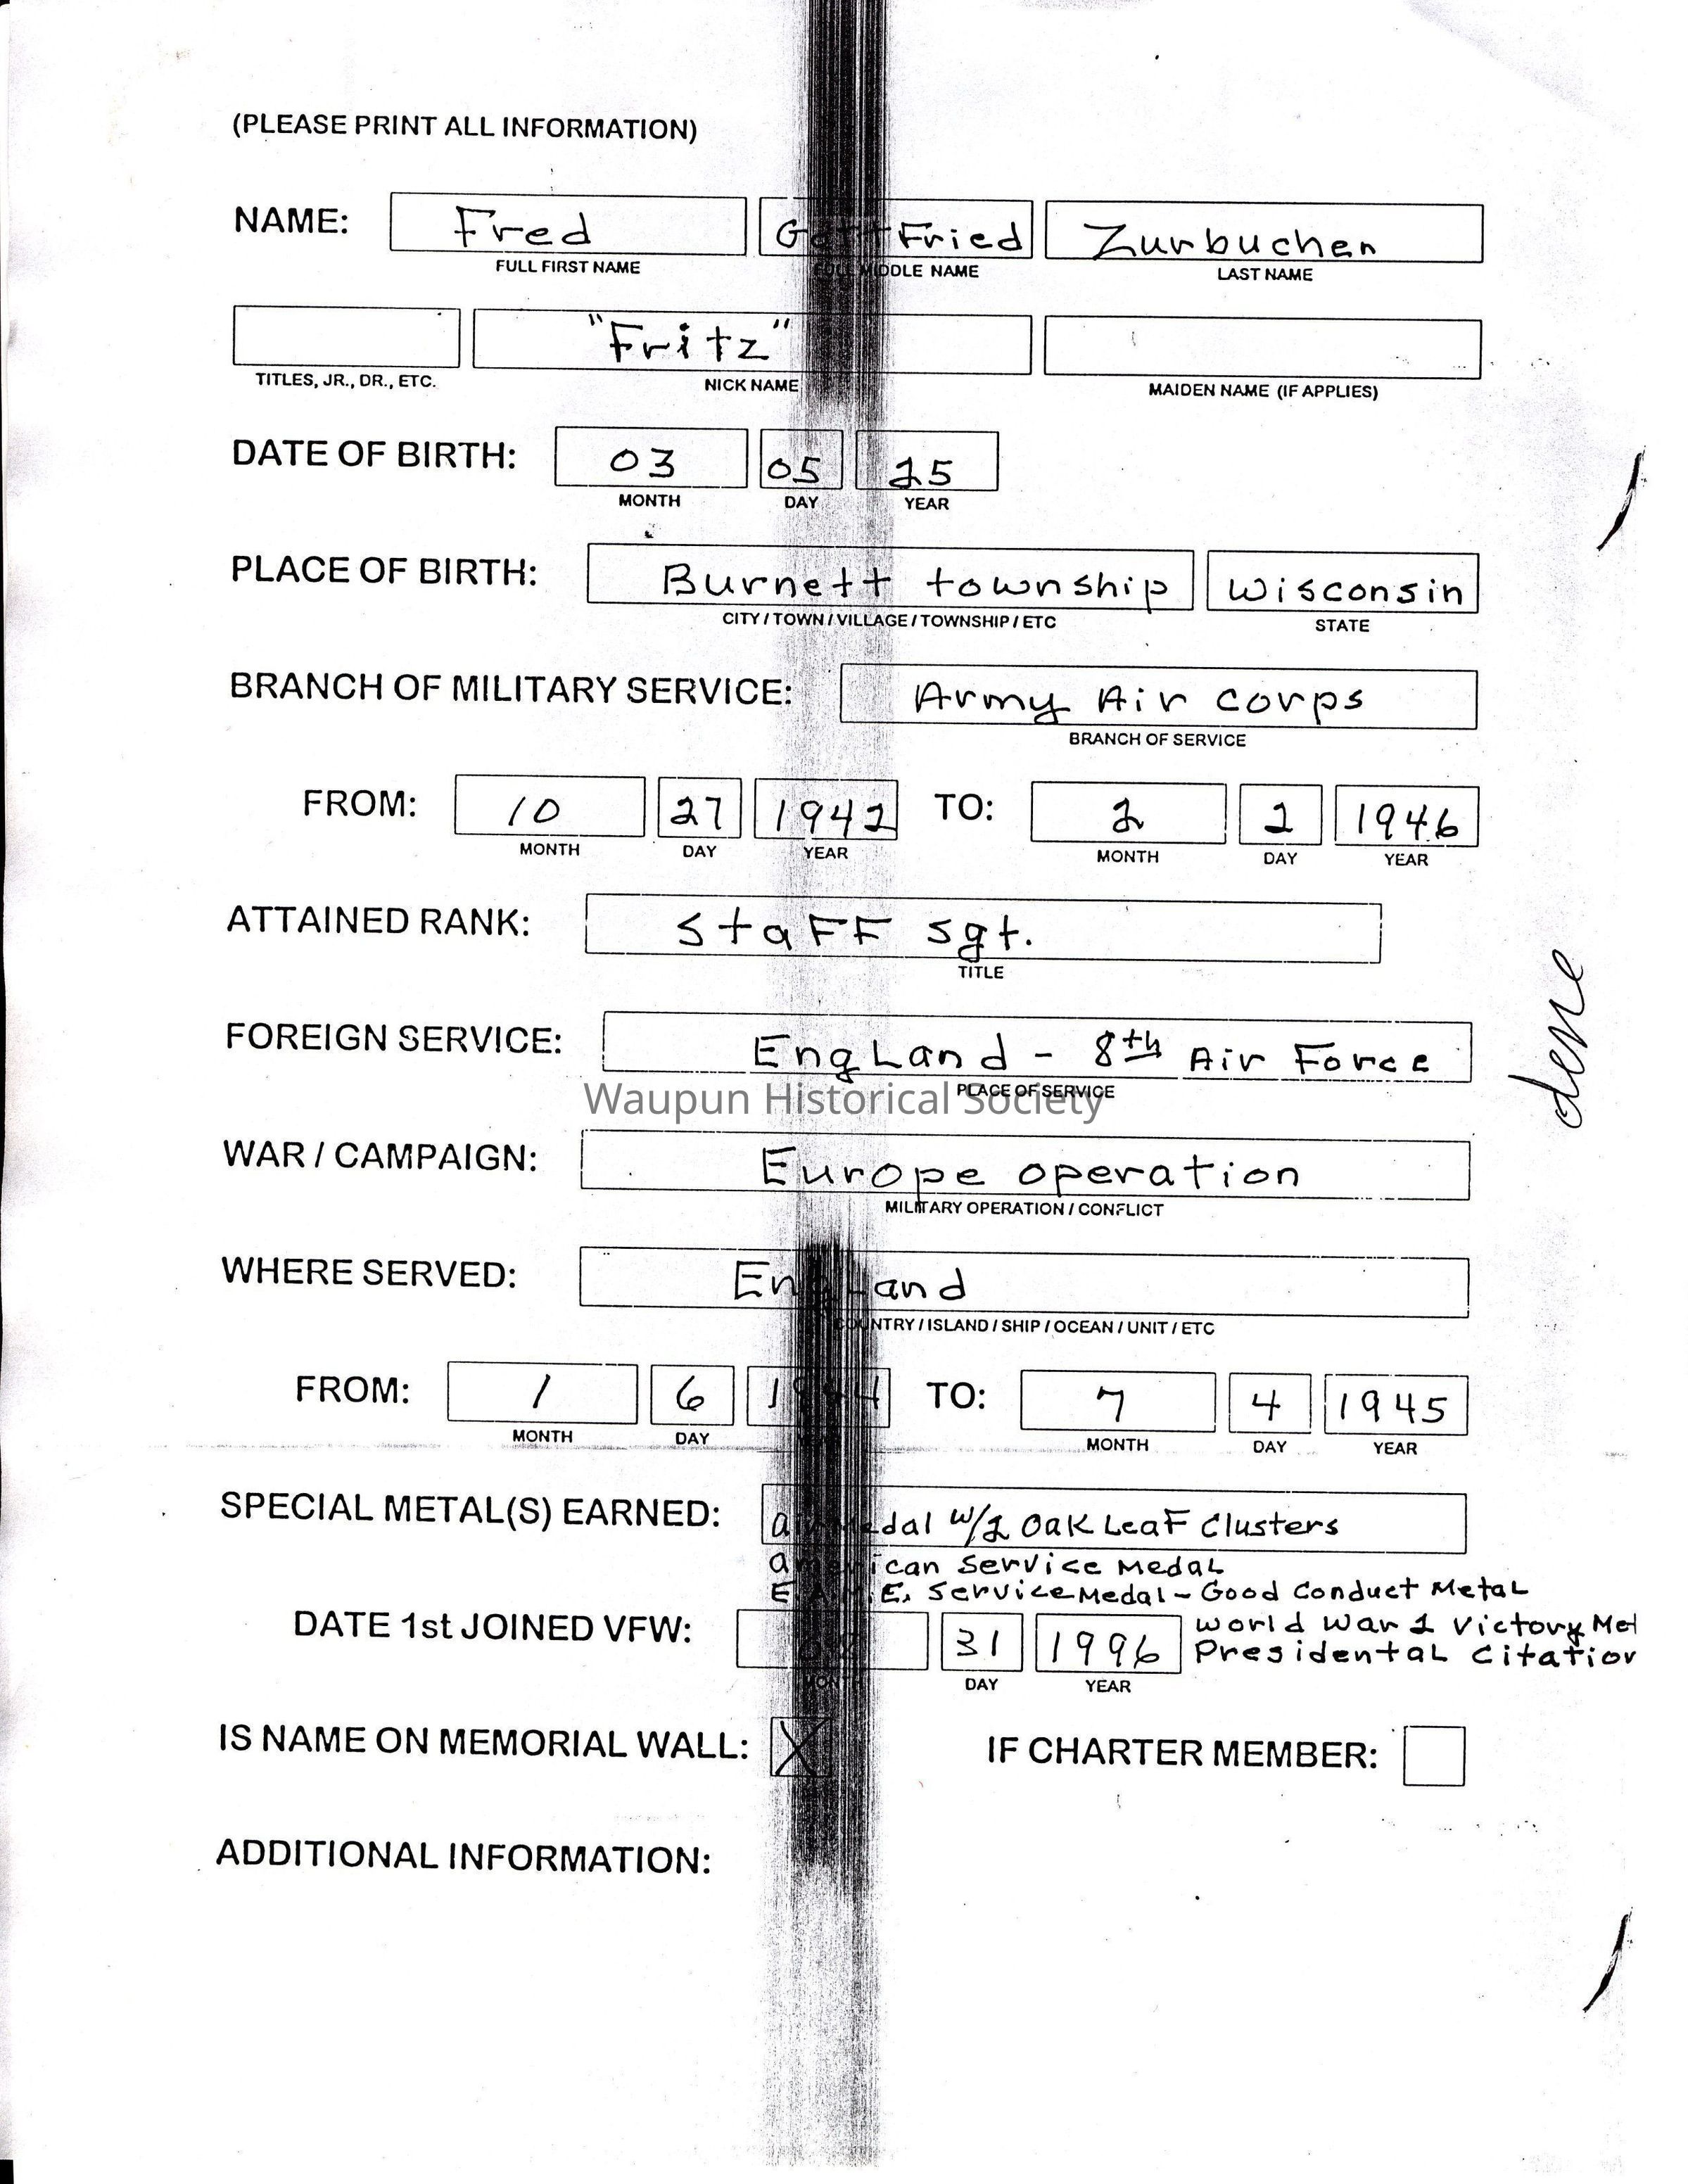 (PLEASE PRINT ALL INFORMATION)
NAME: Fred GottFried Zurbuchen
FULL FIRST NAME FULL MIDDLE NAME LAST NAME
"Fritz"
TITLES, JR., DR., ETC. NICK NAME MAIDEN NAME (IF APPLIES)
DATE OF BIRTH: 03 05 25
MONTH DAY YEAR
PLACE OF BIRTH: Burnett township Wisconsin
CITY / TOWN / VILLAGE / TOWNSHIP / ETC STATE
BRANCH OF MILITARY SERVICE: Army Air corps
BRANCH OF SERVICE
FROM: 10 27 1942 TO: 2 2 1946
MONTH DAY YEAR MONTH DAY YEAR
ATTAINED RANK: Staff sgt.
TITLE
FOREIGN SERVICE: England - 8th Air Force
PLACE OF SERVICE
Waupun Historical Society
done
WAR / CAMPAIGN: Europe operation
MILITARY OPERATION / CONFLICT
WHERE SERVED: England
COUNTRY / ISLAND / SHIP / OCEAN / UNIT / ETC
FROM: 1 6 1944 TO: 7 4 1945
MONTH DAY YEAR MONTH DAY YEAR
SPECIAL METAL(S) EARNED: air Medal w/2 Oak Leaf Clusters
american Service Medal
E.A.M.E. Service Medal - Good Conduct Metal
DATE 1st JOINED VFW: 31 1996 World War 2 Victory Met
Presidental Citation
MONTH DAY YEAR
IS NAME ON MEMORIAL WALL: X IF CHARTER MEMBER:
ADDITIONAL INFORMATION: